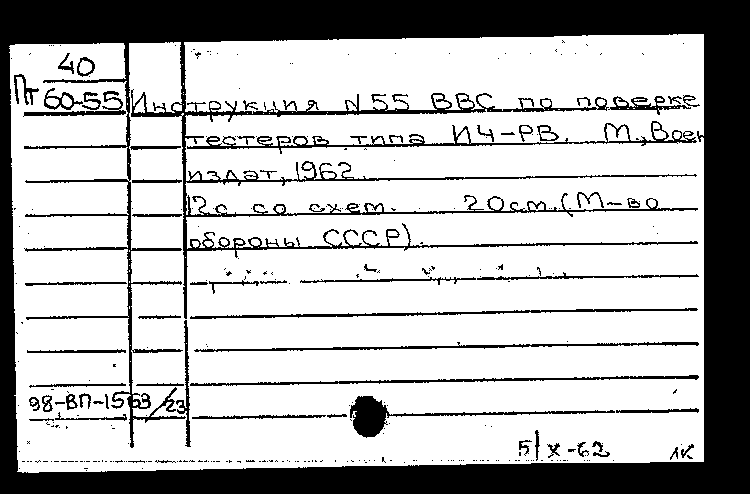 40
Пт 60-55 Инструкция N 55 ВВС по поверке
тестеров типа ИЧ-РВ. М., Воен
издат, 1962.
12с со схем. 20см. (М-во
обороны СССР).
98-ВП-1563/23
5/X-62